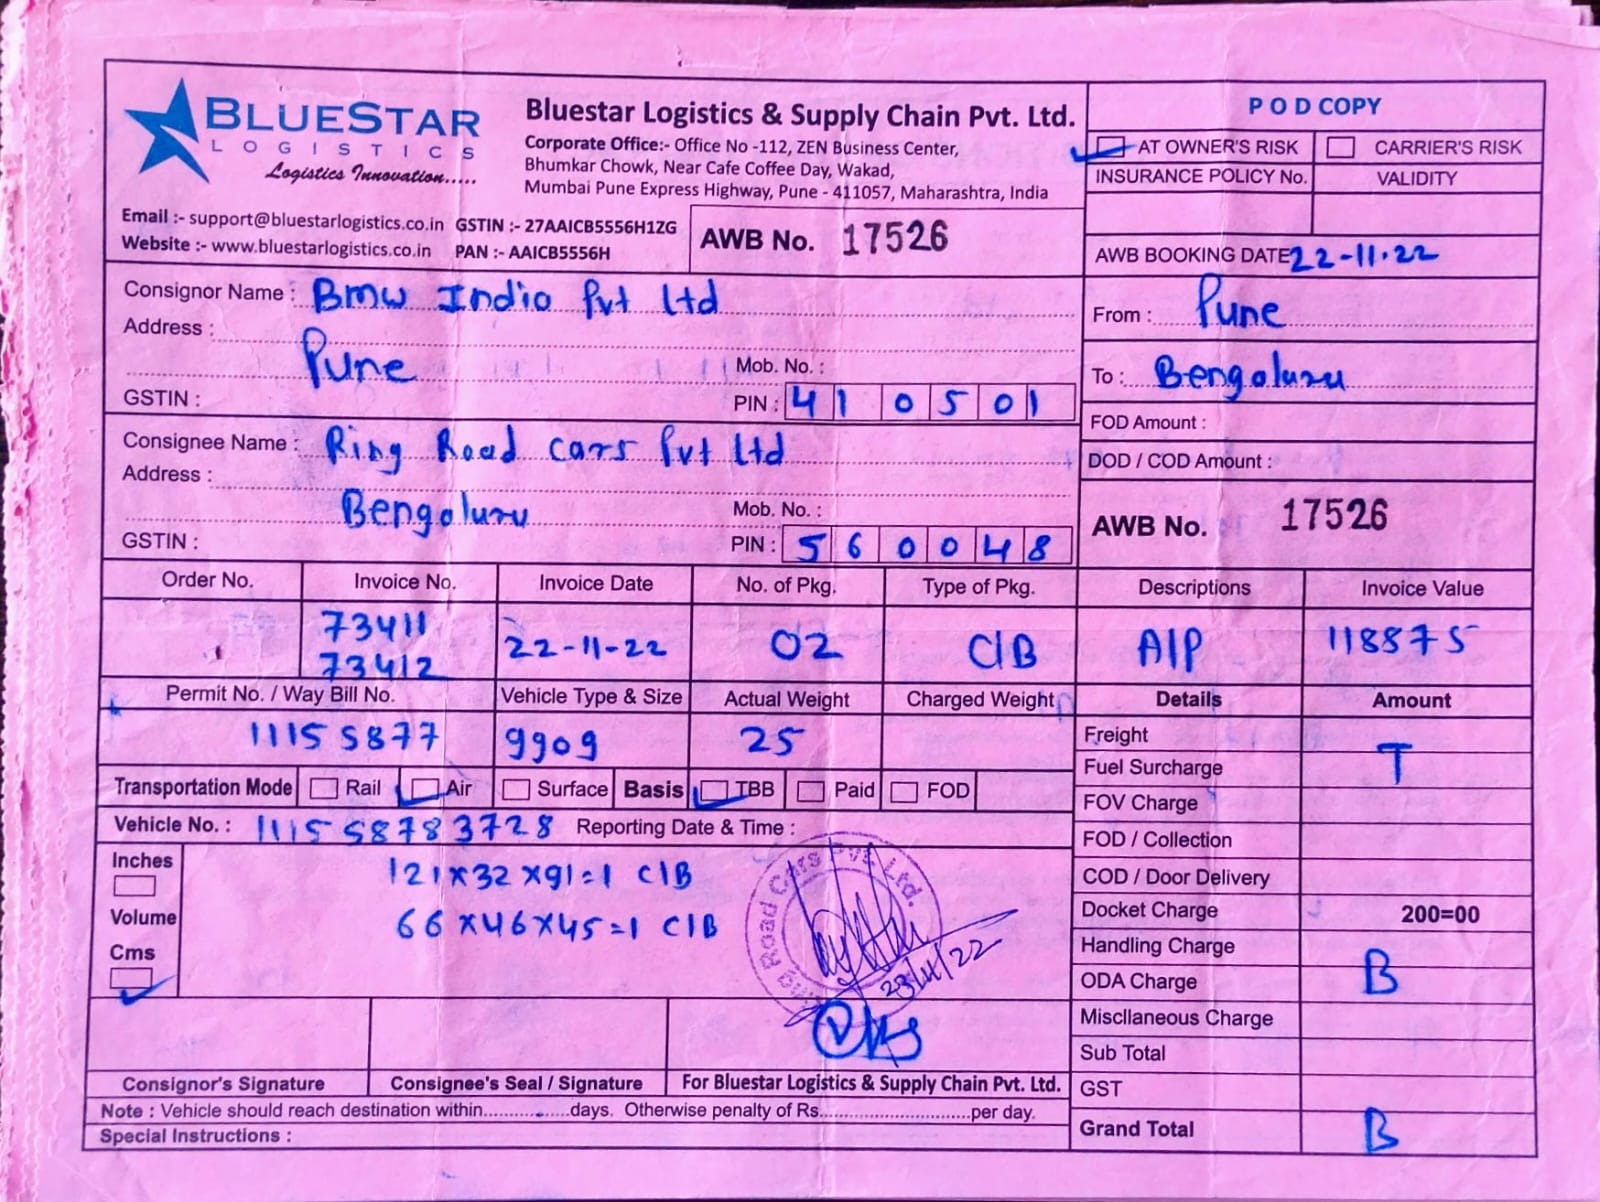 BLUESTAR
LOGISTICS
Logistics Innovation.....
Bluestar Logistics & Supply Chain Pvt. Ltd.
Corporate Office:- Office No -112, ZEN Business Center,
Bhumkar Chowk, Near Cafe Coffee Day, Wakad,
Mumbai Pune Express Highway, Pune - 411057, Maharashtra, India
Email :- support@bluestarlogistics.co.in GSTIN :- 27AAICB5556H1ZG
Website :- www.bluestarlogistics.co.in PAN :- AAICB5556H
AWB No. 17526
POD COPY
AT OWNER'S RISK CARRIER'S RISK
INSURANCE POLICY No. VALIDITY
AWB BOOKING DATE 22-11-22
From : Pune
To : Bengaluru
FOD Amount :
DOD / COD Amount :
AWB No. 17526
Consignor Name : Bmw India Pvt Ltd
Address :
Pune Mob. No. :
GSTIN : PIN : 410501
Consignee Name : Ring Road Cars Pvt Ltd
Address :
Bengaluru Mob. No. :
GSTIN : PIN : 560048
Order No. Invoice No. Invoice Date No. of Pkg. Type of Pkg. Descriptions Invoice Value
73411
73412 22-11-22 02 C/B A/P 118875
Permit No. / Way Bill No. Vehicle Type & Size Actual Weight Charged Weight Details Amount
11155877 9909 25
Transportation Mode Rail Air Surface Basis TBB Paid FOD
Vehicle No. : 111558783728 Reporting Date & Time :
Inches
Volume
Cms
121x32x91=1 C/B
66x46x45=1 C/B
Ring Road Cars Pvt. Ltd.
23/11/22
Freight
T
Fuel Surcharge
FOV Charge
FOD / Collection
COD / Door Delivery
Docket Charge 200=00
Handling Charge
B
ODA Charge
Miscllaneous Charge
Sub Total
GST
Grand Total B
Consignor's Signature Consignee's Seal / Signature For Bluestar Logistics & Supply Chain Pvt. Ltd.
Note : Vehicle should reach destination within..................days. Otherwise penalty of Rs..............................per day.
Special Instructions :